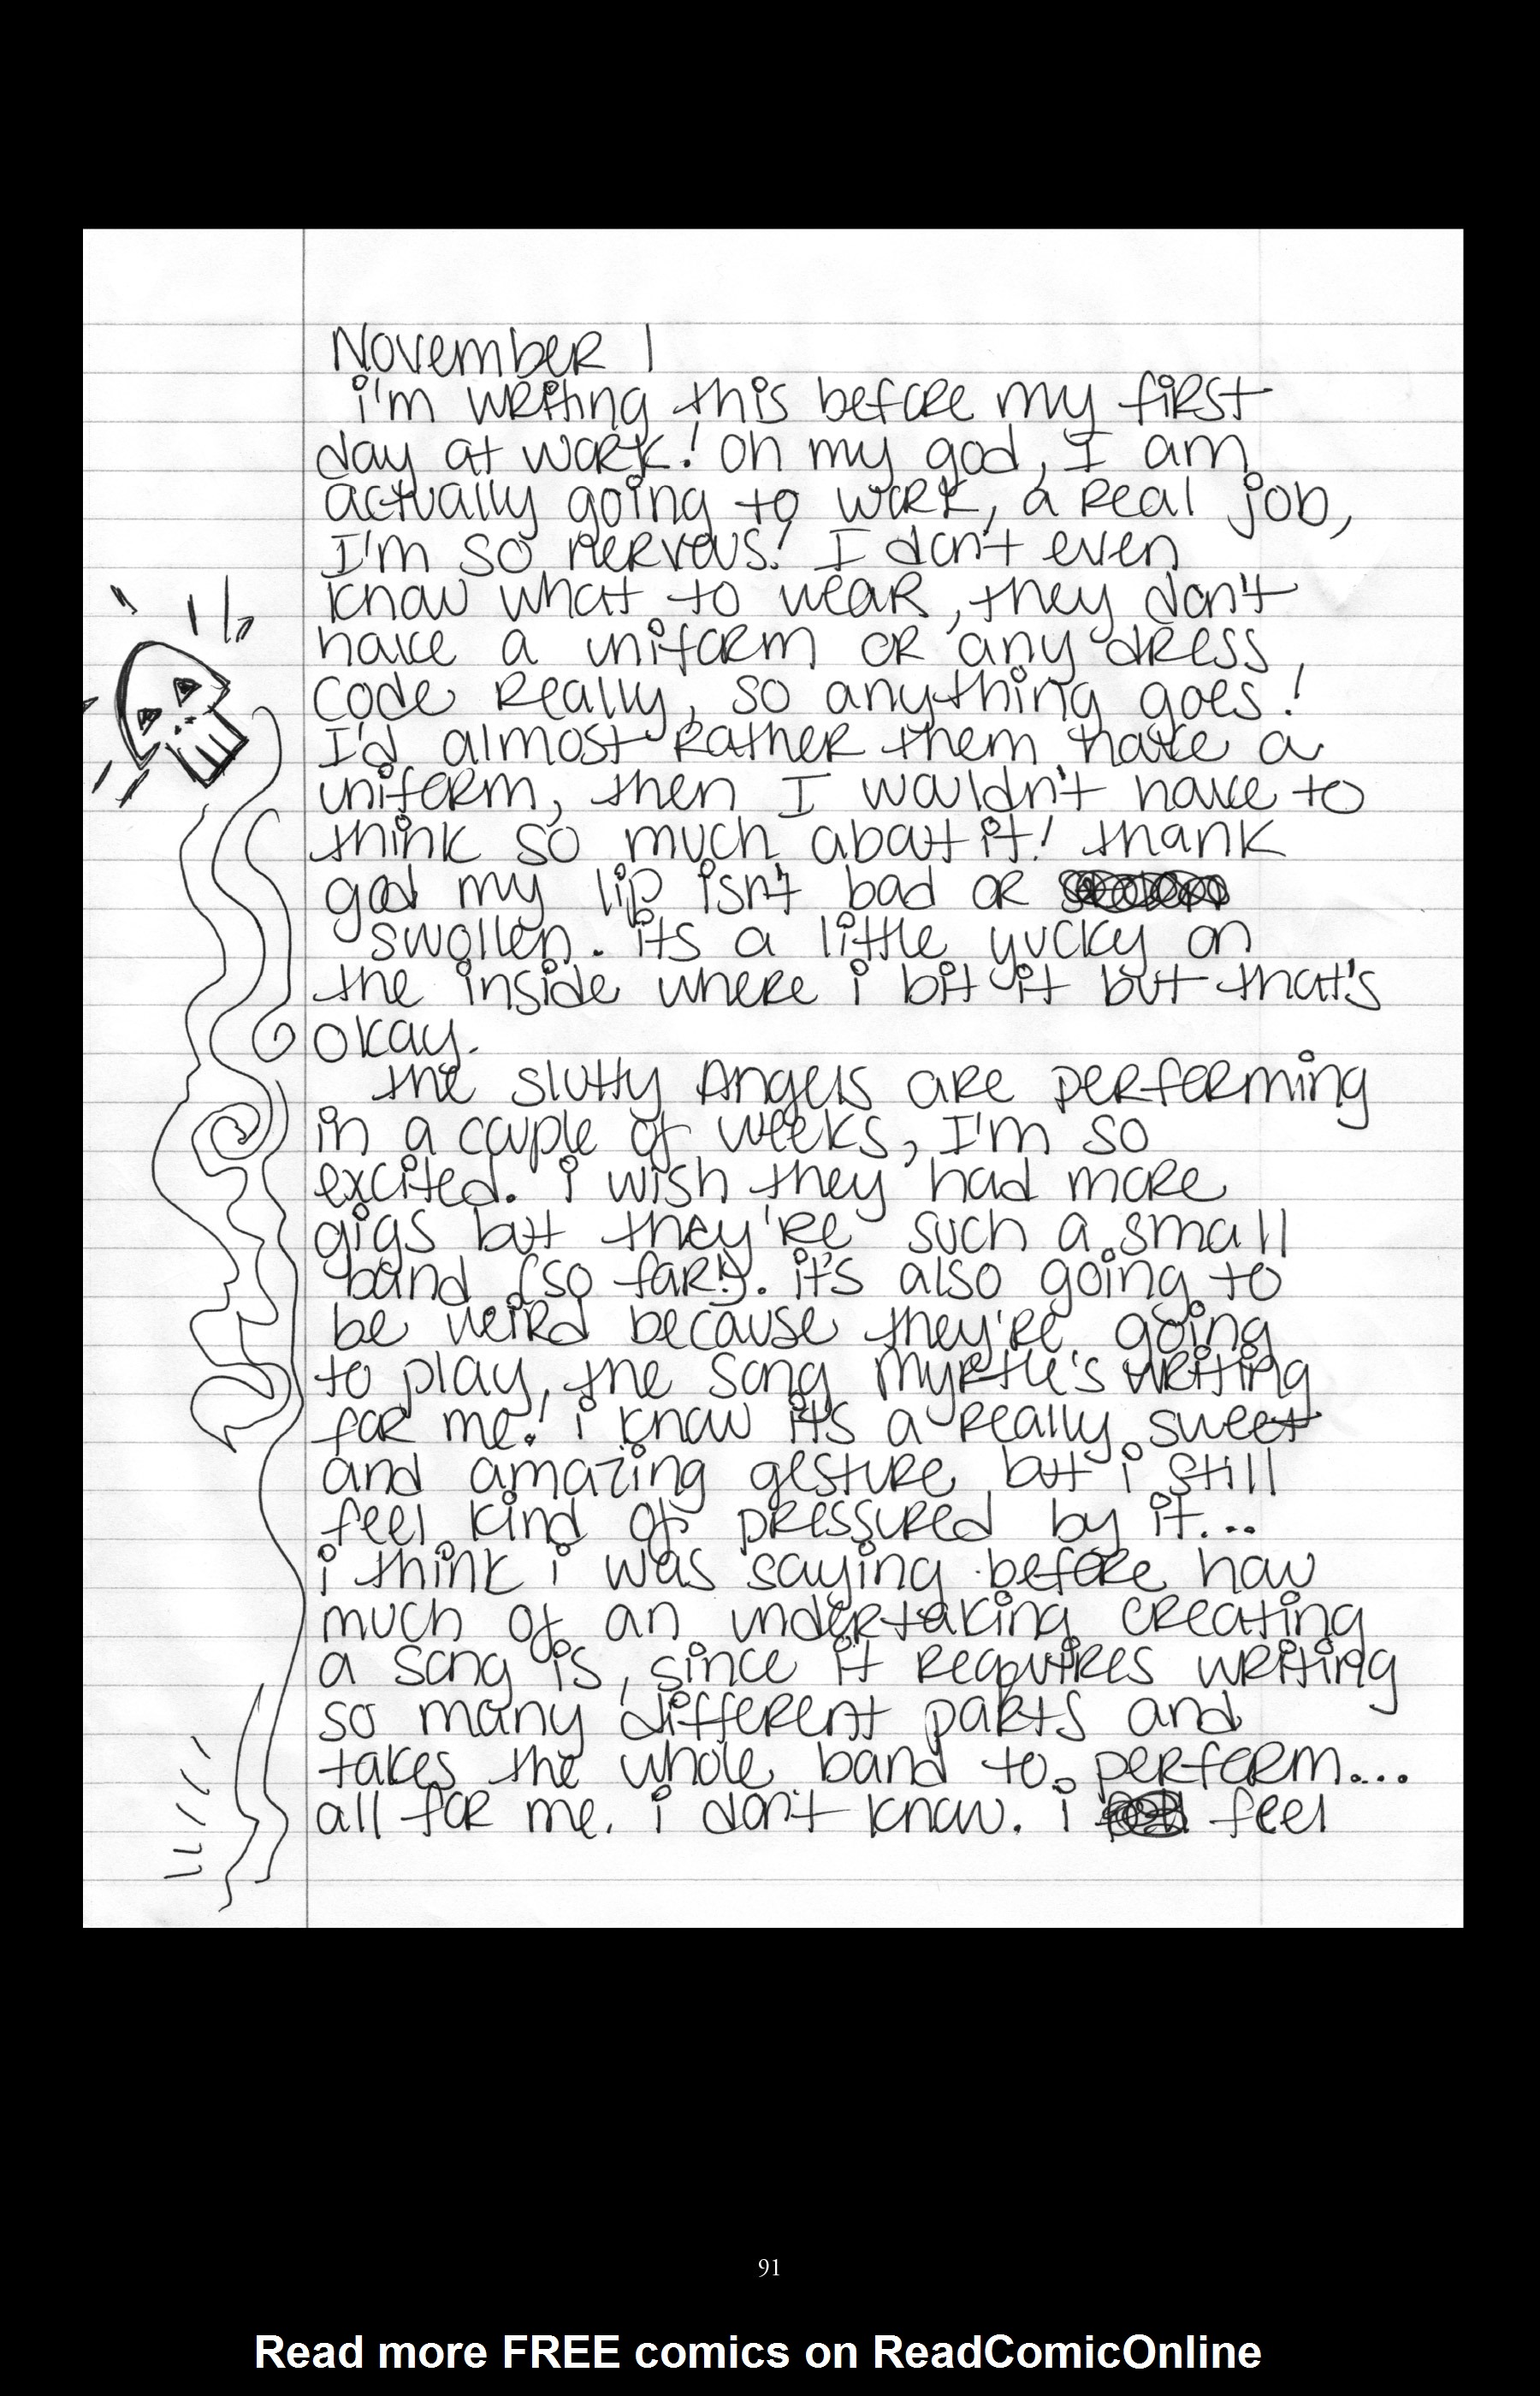 November 1
i'm writing this before my first
day at work! oh my god, I am
actually going to work, a real job,
I'm so nervous! I don't even
know what to wear, they don't
have a uniform or any dress
code really, so anything goes!
I'd almost rather them have a
uniform, then I wouldn't have to
think so much about it! thank
god my lip isn't bad or
swollen. its a little yucky on
the inside where i bit it but that's
okay.
the slutty Angels are performing
in a couple of weeks, I'm so
excited. i wish they had more
gigs but they're such a small
band (so far!). it's also going to
be weird because they're going
to play the song Myrtle's writing
for me! i know its a really sweet
and amazing gesture but i still
feel kind of pressured by it...
i think i was saying before how
much of an undertaking creating
a song is, since it requires writing
so many different parts and
takes the whole band to perform...
all for me. i don't know. i feel
91
Read more FREE comics on ReadComicOnline